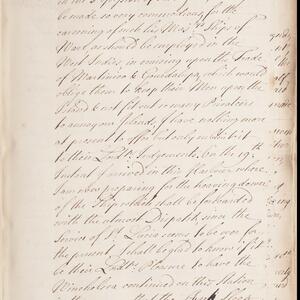 be made so very commodious for the
careening of such his Maj.s Ships of
Warr, as should be employed in the
West Indies, in cruising upon the Trade
of Martinico & Guardalupa, which would
oblige them to keep their Men upon the
Island & not fit out so many Privateers
to annoy our Islands, I have nothing more
at present to offer but only submit it
to their Lord.ps Judgements. On the 19.th
Instant I arrived in this Harbour where
I am now preparing for the heaving down
of the Ship which shall be forwarded
with the utmost Dispatch, since the
Service of S.t Lucia seems to be over for
the present, I shall be glad to know if it
be their Lord.ps Pleasure to have the
Winchelsea continued on this Station